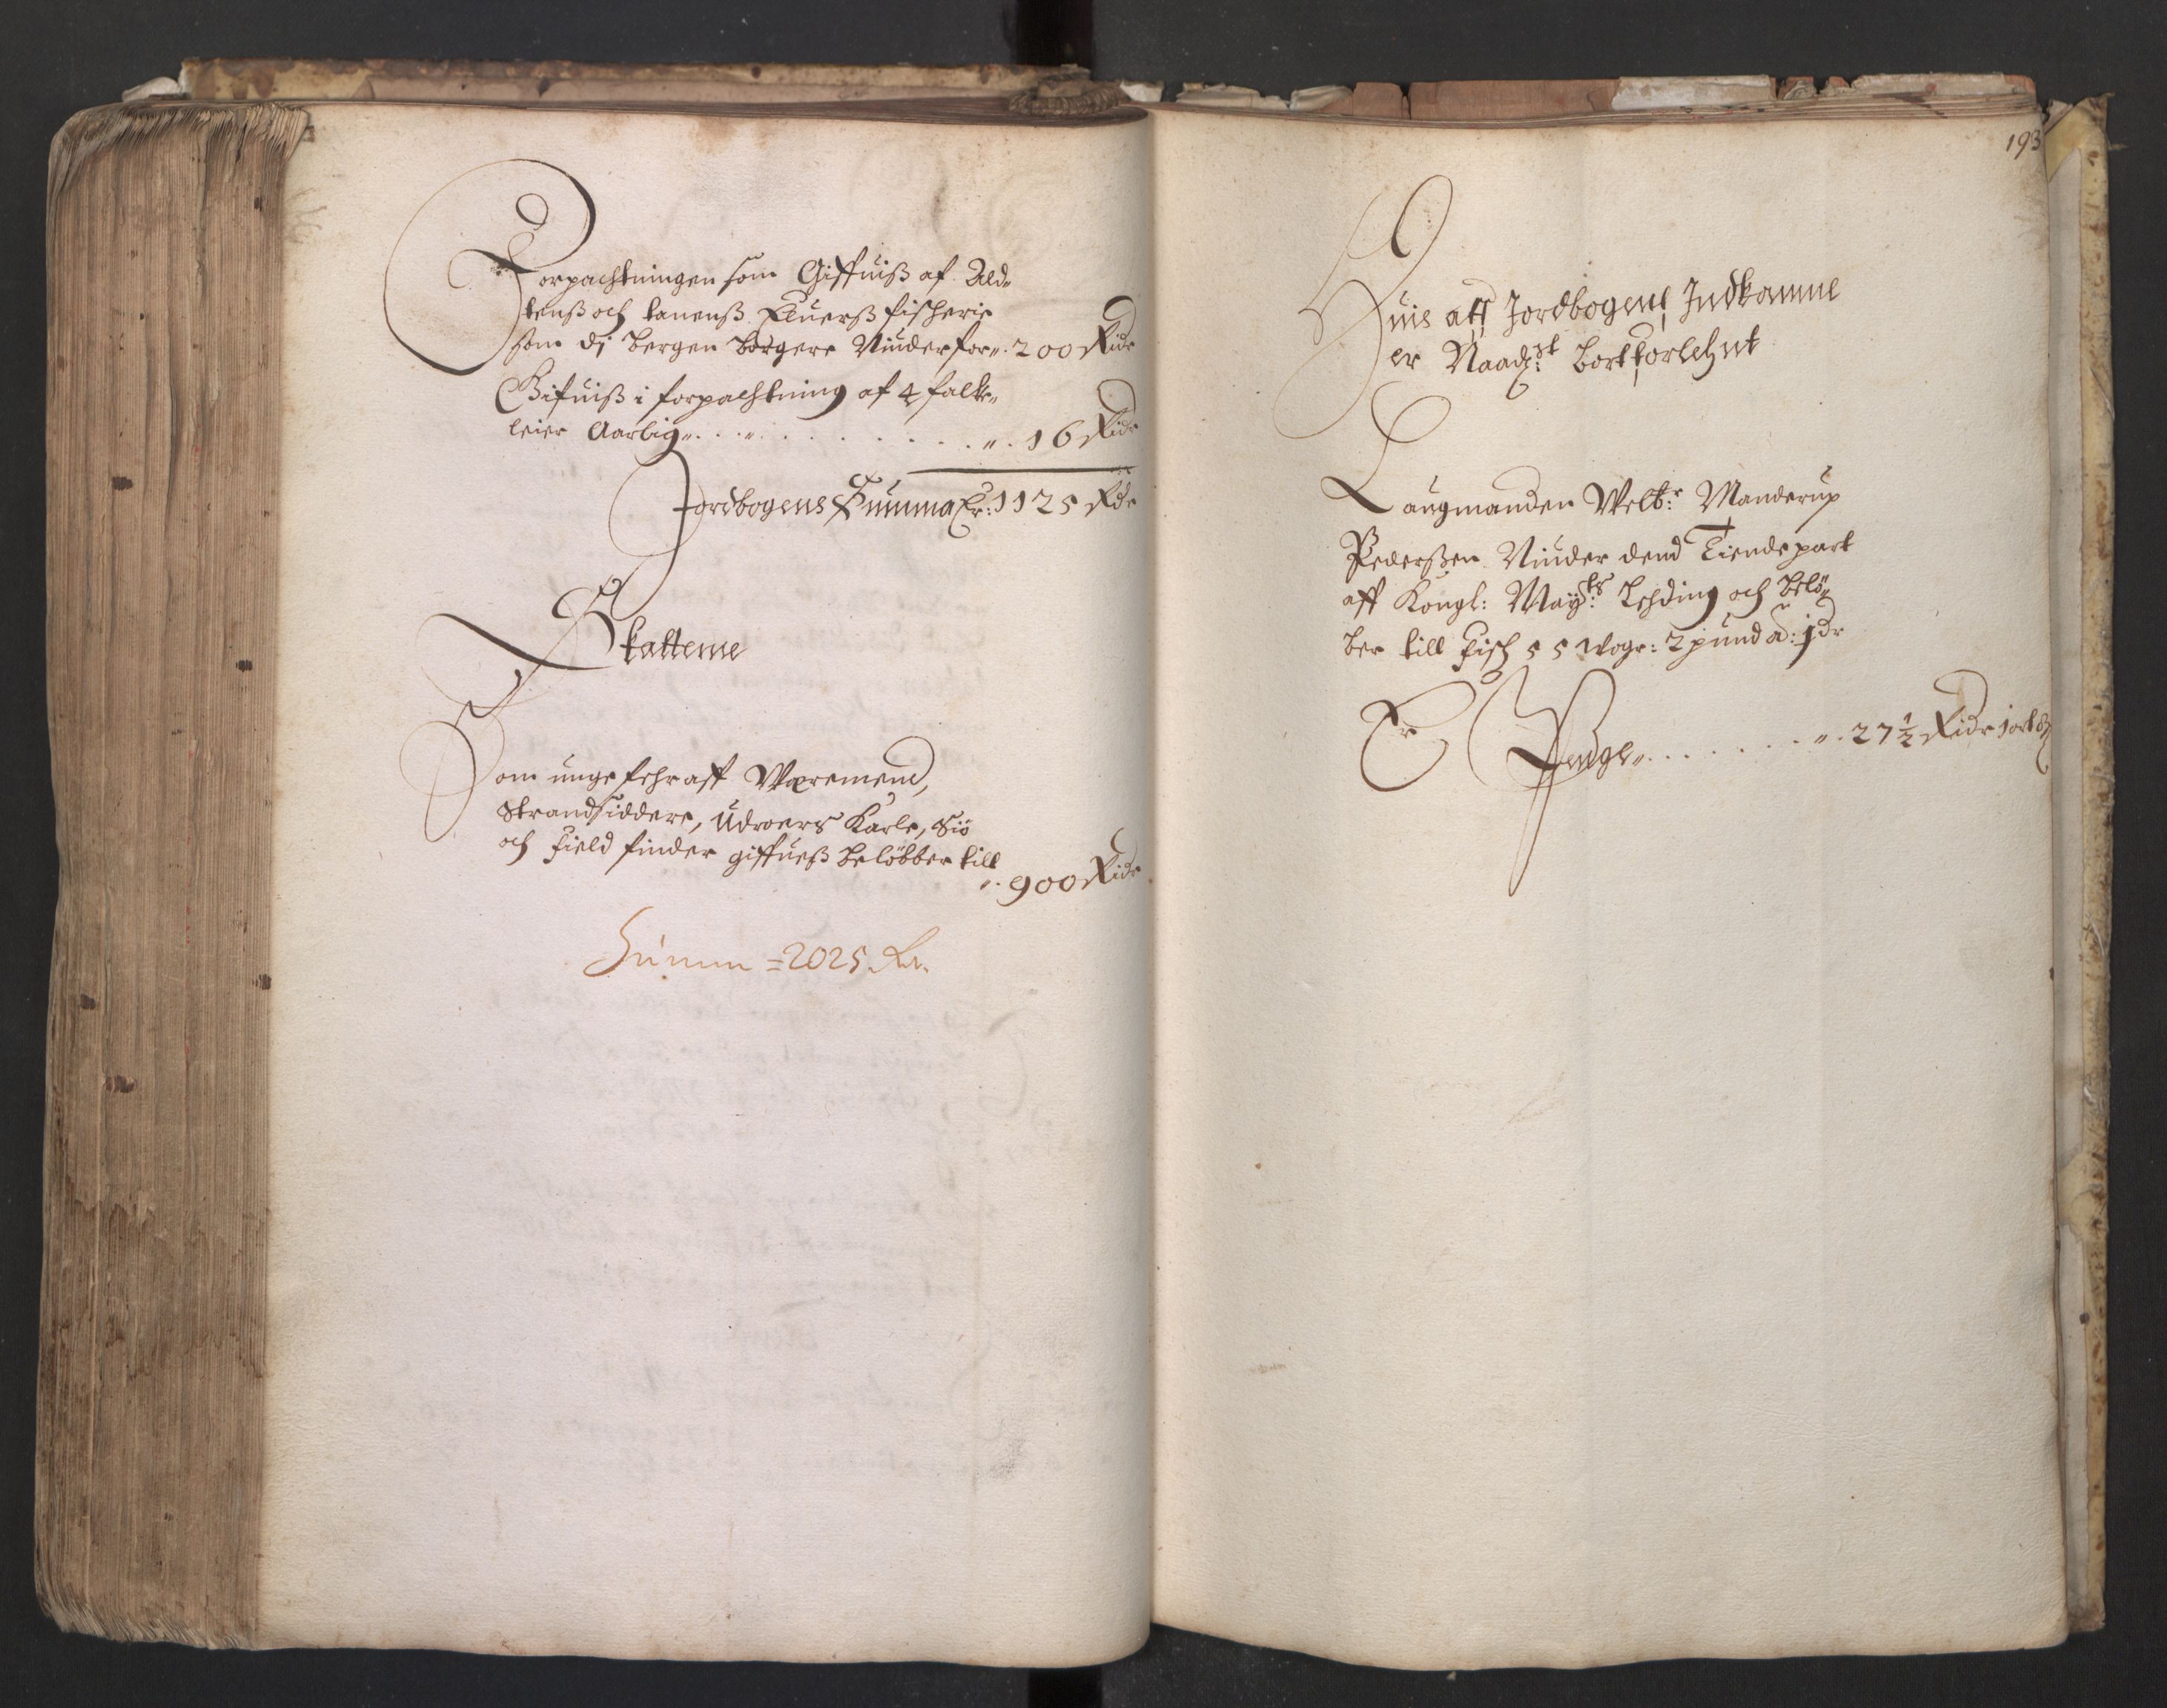 Forpachtningen som Giffuis af Ald-
tens och tanens Eluers fischerie
som di bergen borgere Niuder for 200 Ridr
Gifuis i forpachtning af 4 falke-
leier Aarlig 16 Ridr
Jordbogens Summa Er: 1125 Rdr
Skatterne
Som ungefehr aff Waremend,
Strandsiddere, Udroers Karle, Siö
och field finder giffues belöbber till
900 Ridr
Summ = 2025 Rr.
193
Huis aff Jordbogens Indkomne
er Naadst: bortforlehnt
Laugmanden Welb:r Manderup
Pederssen Niuder dend Tiende part
aff Kongl: Mayts: Lehding och belö-
ber till fisk 55 woger: 2 pund a: ½ dr
Er Penge 27½ Ridr 1 ort 8 s